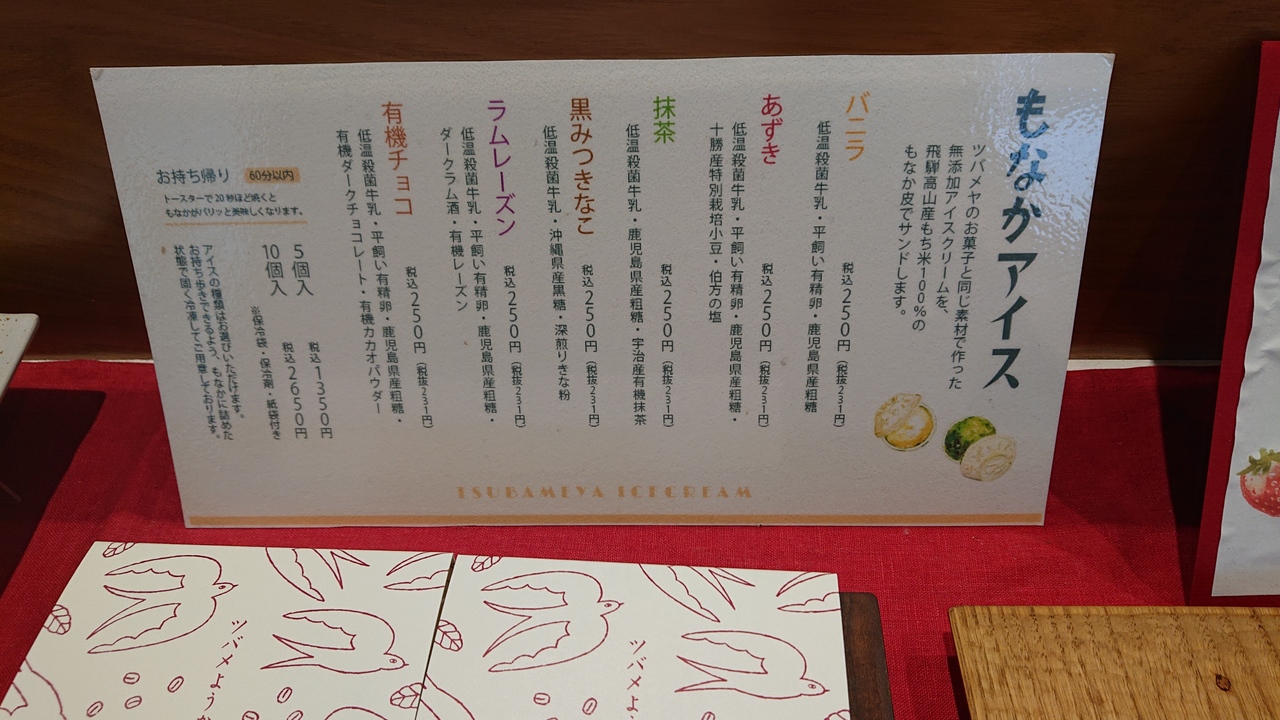 もなかアイス
ツバメヤのお菓子と同じ素材で作った
無添加アイスクリームを、
飛騨高山産もち米100%の
もなか皮でサンドします。
バニラ
税込250円(税抜231円)
低温殺菌牛乳・平飼い有精卵・鹿児島県産粗糖
あずき
税込250円(税抜231円)
低温殺菌牛乳・平飼い有精卵・鹿児島県産粗糖・
十勝産特別栽培小豆・伯方の塩
抹茶
税込250円(税抜231円)
低温殺菌牛乳・鹿児島県産粗糖・宇治産有機抹茶
黒みつきなこ
税込250円(税抜231円)
低温殺菌牛乳・沖縄県産黒糖・深煎りきな粉
ラムレーズン
税込250円(税抜231円)
低温殺菌牛乳・平飼い有精卵・鹿児島県産粗糖・
ダークラム酒・有機レーズン
有機チョコ
税込250円(税抜231円)
低温殺菌牛乳・平飼い有精卵・鹿児島県産粗糖・
有機ダークチョコレート・有機カカオパウダー
お持ち帰り 60分以内
トースターで20秒ほど焼くと
もなかがパリッと美味しくなります。
5個入 税込1350円
10個入 税込2650円
※保冷袋・保冷剤・紙袋付き
アイスの種類はお選びいただけます。
お持ち歩きできるよう、もなかに詰めた
状態で固く冷凍してご用意しております。
TSUBAMEYA ICECREAM
ツバメようか
ツバメよ